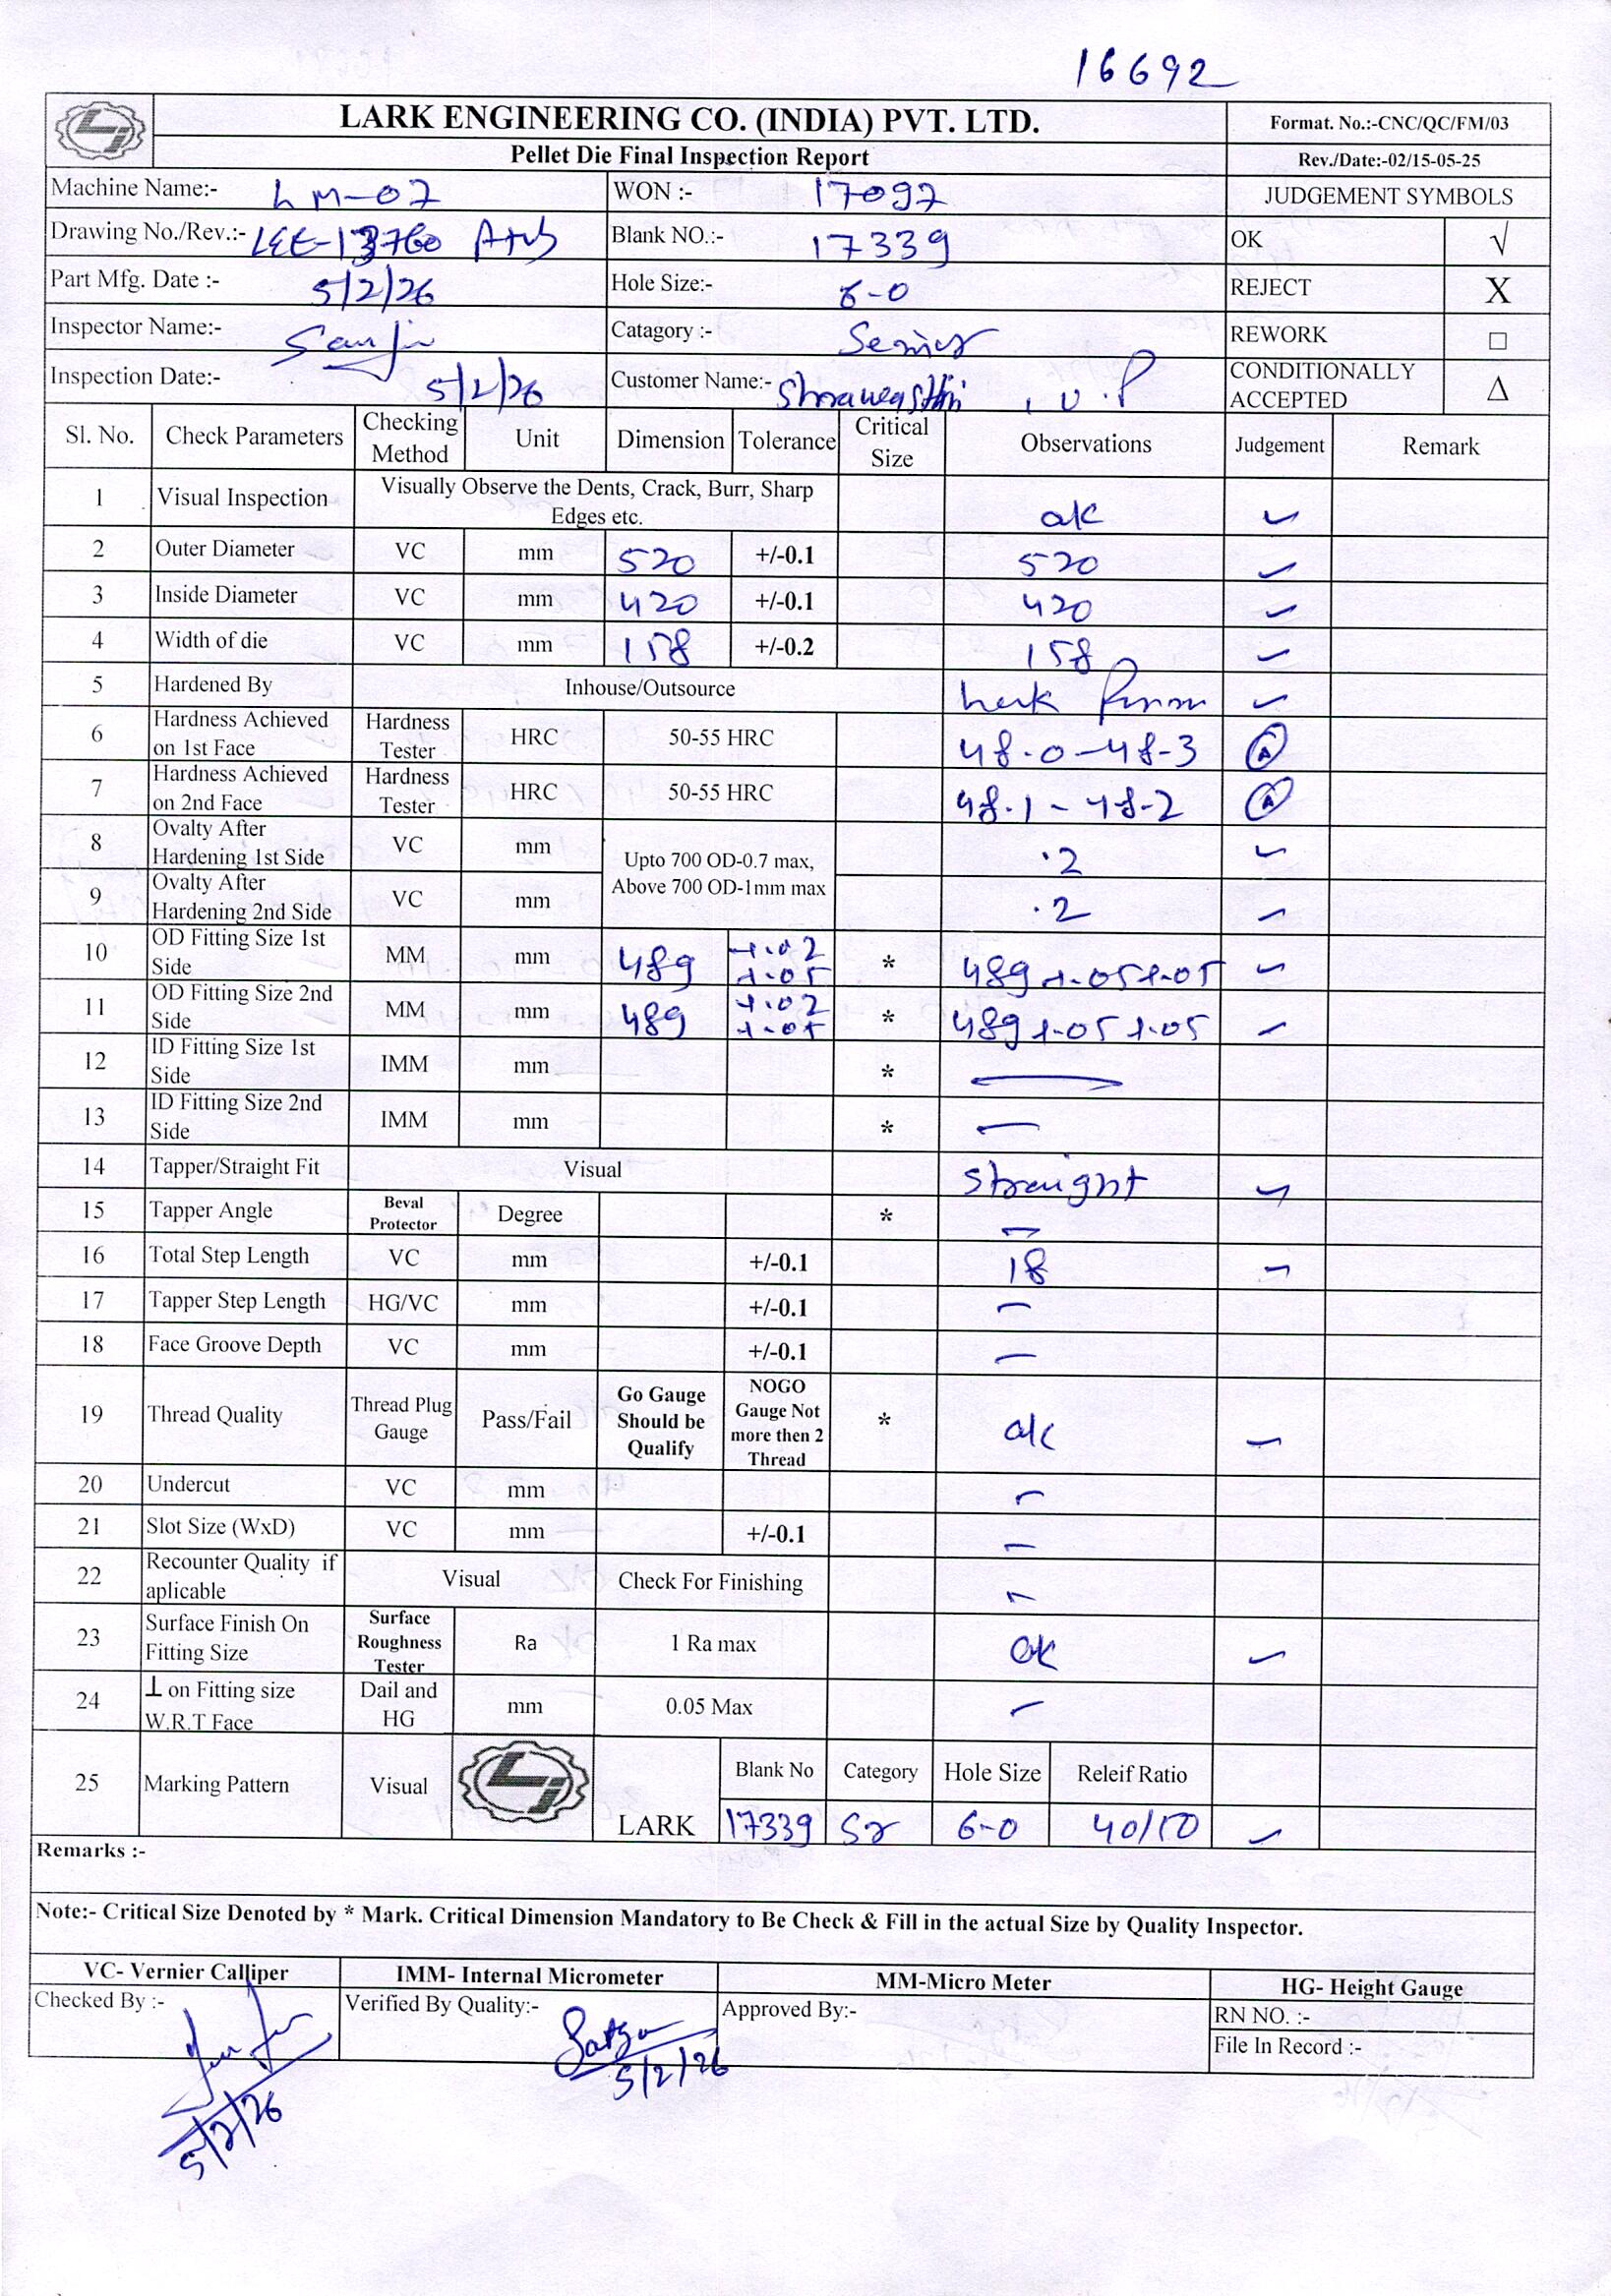 16692
LARK ENGINEERING CO. (INDIA) PVT. LTD.
Format. No.:-CNC/QC/FM/03
Pellet Die Final Inspection Report
Rev./Date:-02/15-05-25
Machine Name:- LM-07 WON :- 17097 JUDGEMENT SYMBOLS
Drawing No./Rev.:- LEE-13760 Blank NO.:- 17339 OK √
Part Mfg. Date :- 5/2/26 Hole Size:- 6-0 REJECT X
Inspector Name:- Catagory :- Senior REWORK □
Inspection Date:- 5/2/26 Customer Name:- , U.P CONDITIONALLY ACCEPTED Δ
Sl. No. Check Parameters Checking Method Unit Dimension Tolerance Critical Size Observations Judgement Remark
1 Visual Inspection Visually Observe the Dents, Crack, Burr, Sharp Edges etc. ok ✓
2 Outer Diameter VC mm 520 +/-0.1 520 ✓
3 Inside Diameter VC mm 420 +/-0.1 420 ✓
4 Width of die VC mm 158 +/-0.2 158 ✓
5 Hardened By Inhouse/Outsource ✓
6 Hardness Achieved on 1st Face Hardness Tester HRC 50-55 HRC 48.0-48-3
7 Hardness Achieved on 2nd Face Hardness Tester HRC 50-55 HRC 48.1-48-2
8 Ovalty After Hardening 1st Side VC mm Upto 700 OD-0.7 max, Above 700 OD-1mm max .2 ✓
9 Ovalty After Hardening 2nd Side VC mm .2 ✓
10 OD Fitting Size 1st Side MM mm 489 +.02 +.05 * 489 +.05 +.05 ✓
11 OD Fitting Size 2nd Side MM mm 489 +.02 +.05 * 489 +.05 +.05 ✓
12 ID Fitting Size 1st Side IMM mm * —
13 ID Fitting Size 2nd Side IMM mm * —
14 Tapper/Straight Fit Visual straight ✓
15 Tapper Angle Beval Protector Degree * —
16 Total Step Length VC mm +/-0.1 18 ✓
17 Tapper Step Length HG/VC mm +/-0.1 —
18 Face Groove Depth VC mm +/-0.1 —
19 Thread Quality Thread Plug Gauge Pass/Fail Go Gauge Should be Qualify NOGO Gauge Not more then 2 Thread * ok ✓
20 Undercut VC mm —
21 Slot Size (WxD) VC mm +/-0.1 —
22 Recounter Quality if aplicable Visual Check For Finishing —
23 Surface Finish On Fitting Size Surface Roughness Tester Ra 1 Ra max ok ✓
24 ⊥ on Fitting size W.R.T Face Dail and HG mm 0.05 Max —
25 Marking Pattern Visual LARK Blank No Category Hole Size Releif Ratio
17339 Sr 6-0 40/10 ✓
Remarks :-
Note:- Critical Size Denoted by * Mark. Critical Dimension Mandatory to Be Check & Fill in the actual Size by Quality Inspector.
VC- Vernier Calliper IMM- Internal Micrometer MM-Micro Meter HG- Height Gauge
Checked By :- Verified By Quality:- Approved By:- RN NO. :-
File In Record :-
5/2/26
5/2/26